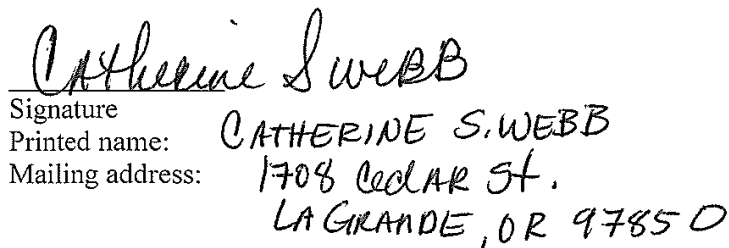 Catherine S Webb
Signature
Printed name: CATHERINE S. WEBB
Mailing address: 1708 Cedar St.
LA GRANDE, OR 97850